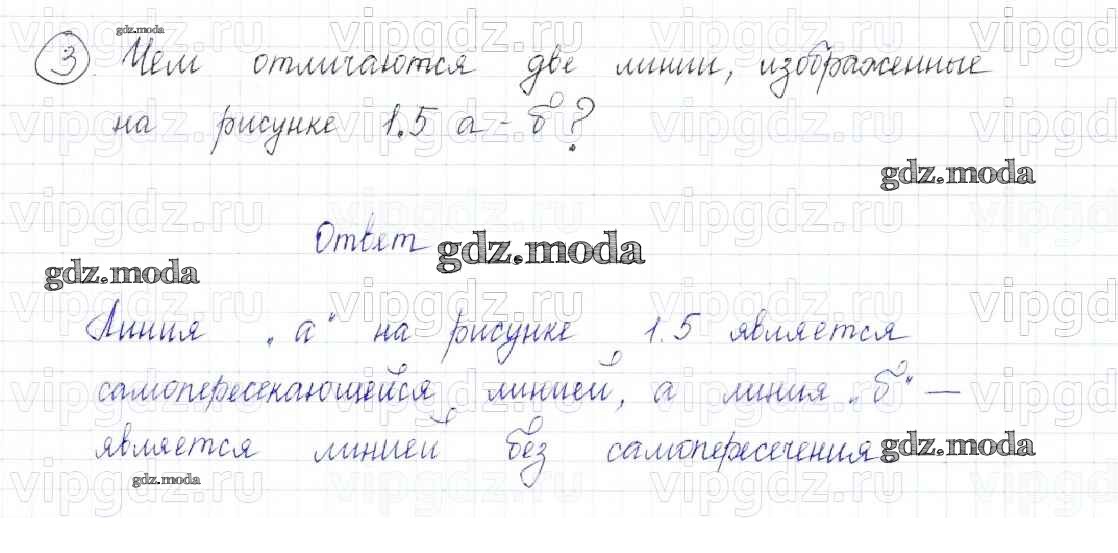 gdz.moda
③ Чем отличаются две линии, изображенные
на рисунке 1.5 а - б?
gdz.moda
Ответ gdz.moda
gdz.moda
Линия „а“ на рисунке 1.5 является
самопересекающейся линией, а линия „б“ —
является линией без самопересечения gdz.moda
gdz.moda
vipgdz.ru